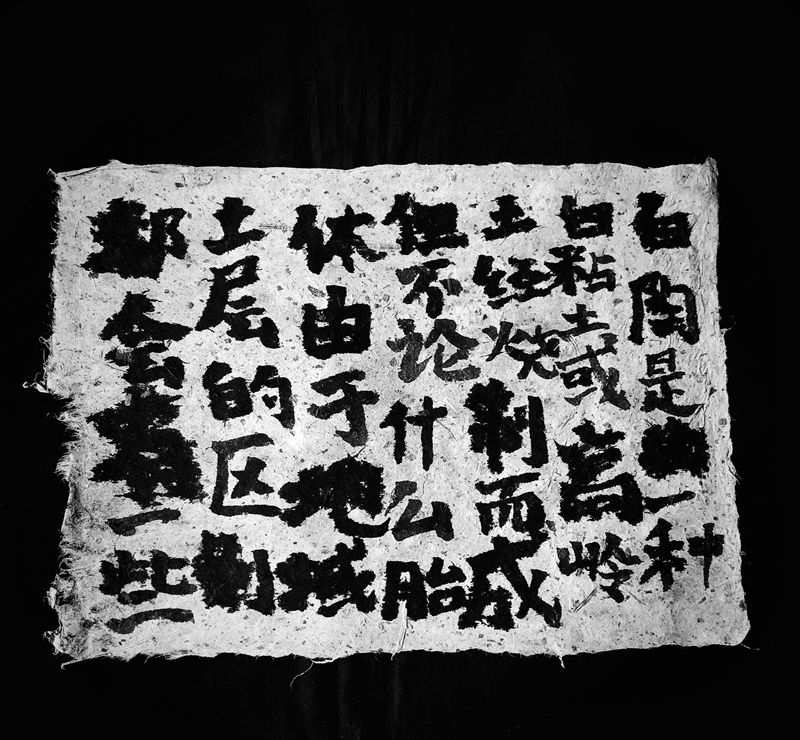 白陶是由一种
白粘土或高岭
土经烧制而成
但不论什么胎
体由于地域
土层的区别
都会有一些